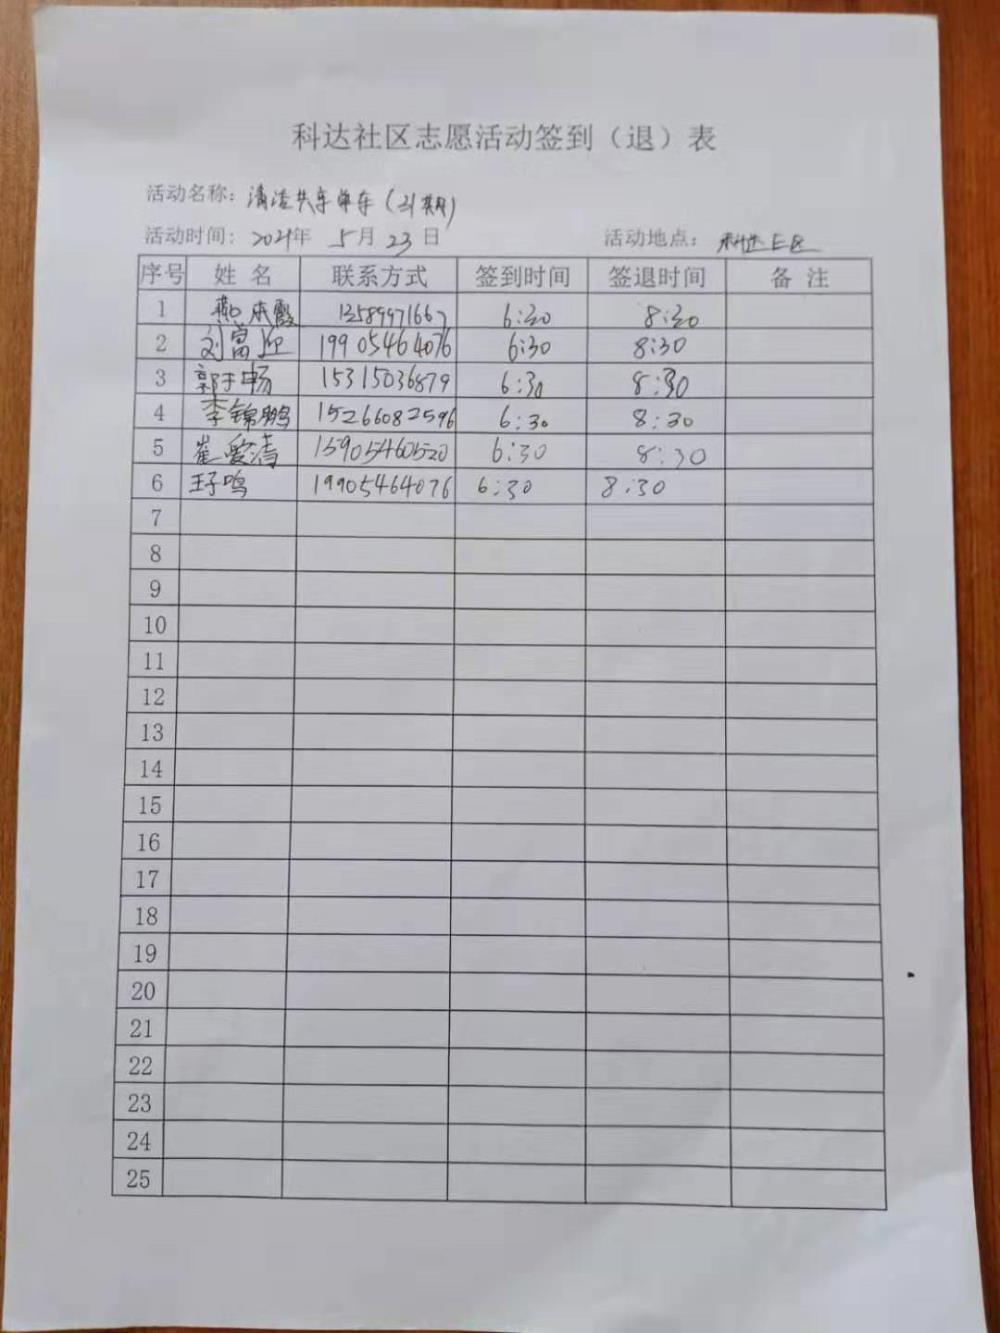 科达社区志愿活动签到（退）表
活动名称：清洁共享单车（21期）
活动时间：2021年 5月 23日 活动地点：科达E区
序号 姓名 联系方式 签到时间 签退时间 备注
1 燕本霞 13589971667 6:30 8:30
2 刘富迎 19905464076 6:30 8:30
3 郭于畅 15315036879 6:30 8:30
4 李锦鹏 15266082596 6:30 8:30
5 崔爱清 15905460520 6:30 8:30
6 王子鸣 19905464076 6:30 8:30
7
8
9
10
11
12
13
14
15
16
17
18
19
20
21
22
23
24
25